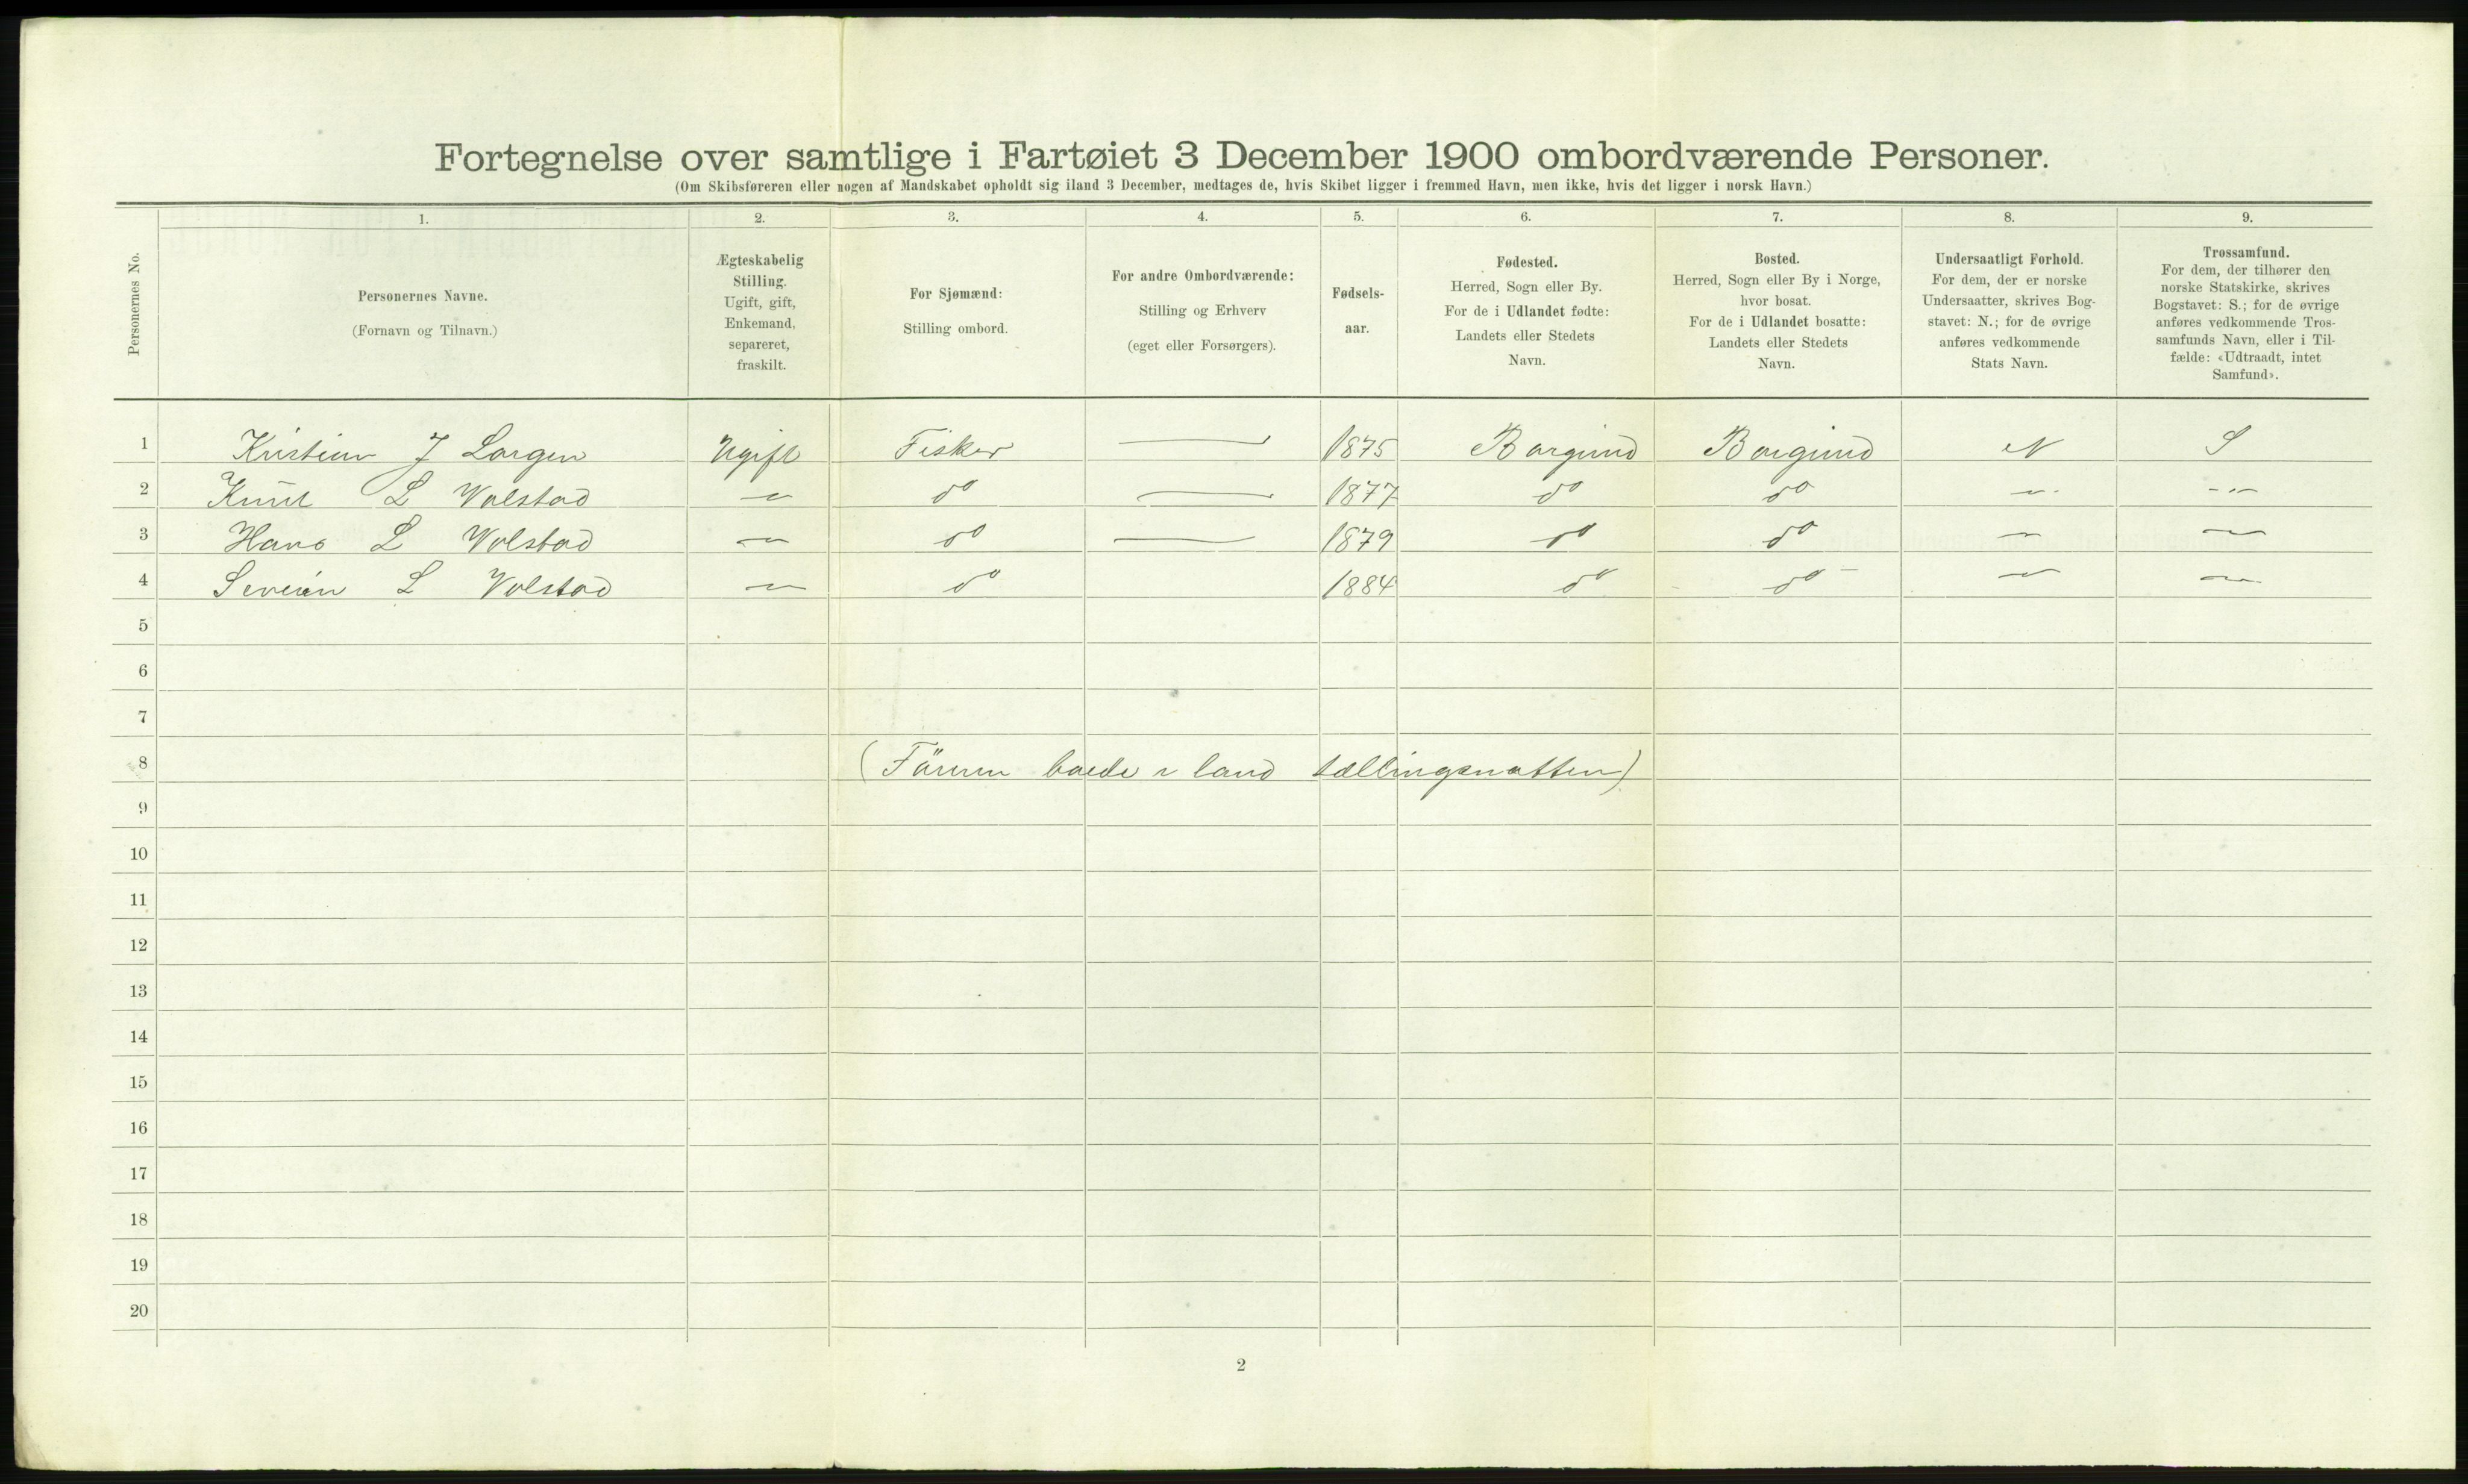 Fortegnelse over samtlige i Fartøiet 3 December 1900 ombordværende Personer.
(Om Skibsføreren eller nogen af Mandskabet opholdt sig iland 3 December, medtages de, hvis Skibet ligger i fremmed Havn, men ikke, hvis det ligger i norsk Havn.)
Personernes No.
1. 2. 3. 4. 5. 6. 7. 8. 9.
Personernes Navne.
(Fornavn og Tilnavn.)
Ægteskabelig
Stilling.
Ugift, gift,
Enkemand,
separeret,
fraskilt.
For Sjømænd:
Stilling ombord.
For andre Ombordværende:
Stilling og Erhverv
(eget eller Forsørgers).
Fødsels-
aar.
Fødested.
Herred, Sogn eller By.
For de i Udlandet fødte:
Landets eller Stedets
Navn.
Bosted.
Herred, Sogn eller By i Norge,
hvor bosat.
For de i Udlandet bosatte:
Landets eller Stedets
Navn.
Undersaatligt Forhold.
For dem, der er norske
Undersaatter, skrives Bog-
stavet: N.; for de øvrige
anføres vedkommende
Stats Navn.
Trossamfund.
For dem, der tilhører den
norske Statskirke, skrives
Bogstavet: S.; for de øvrige
anføres vedkommende Tros-
samfunds Navn, eller i Til-
fælde: «Udtraadt, intet
Samfund».
1 Kristian J Ugift Fisker — 1875 Borgund Borgund N S
2 Knut L Volstad —"— do — 1877 do do —"— —"—
3 Hans L Volstad —"— do — 1879 do do —"— —"—
4 Severin L Volstad —"— do 1884 do do —"— —"—
5
6
7
8 (Føreren boede i land tællingsnatten)
9
10
11
12
13
14
15
16
17
18
19
20
2